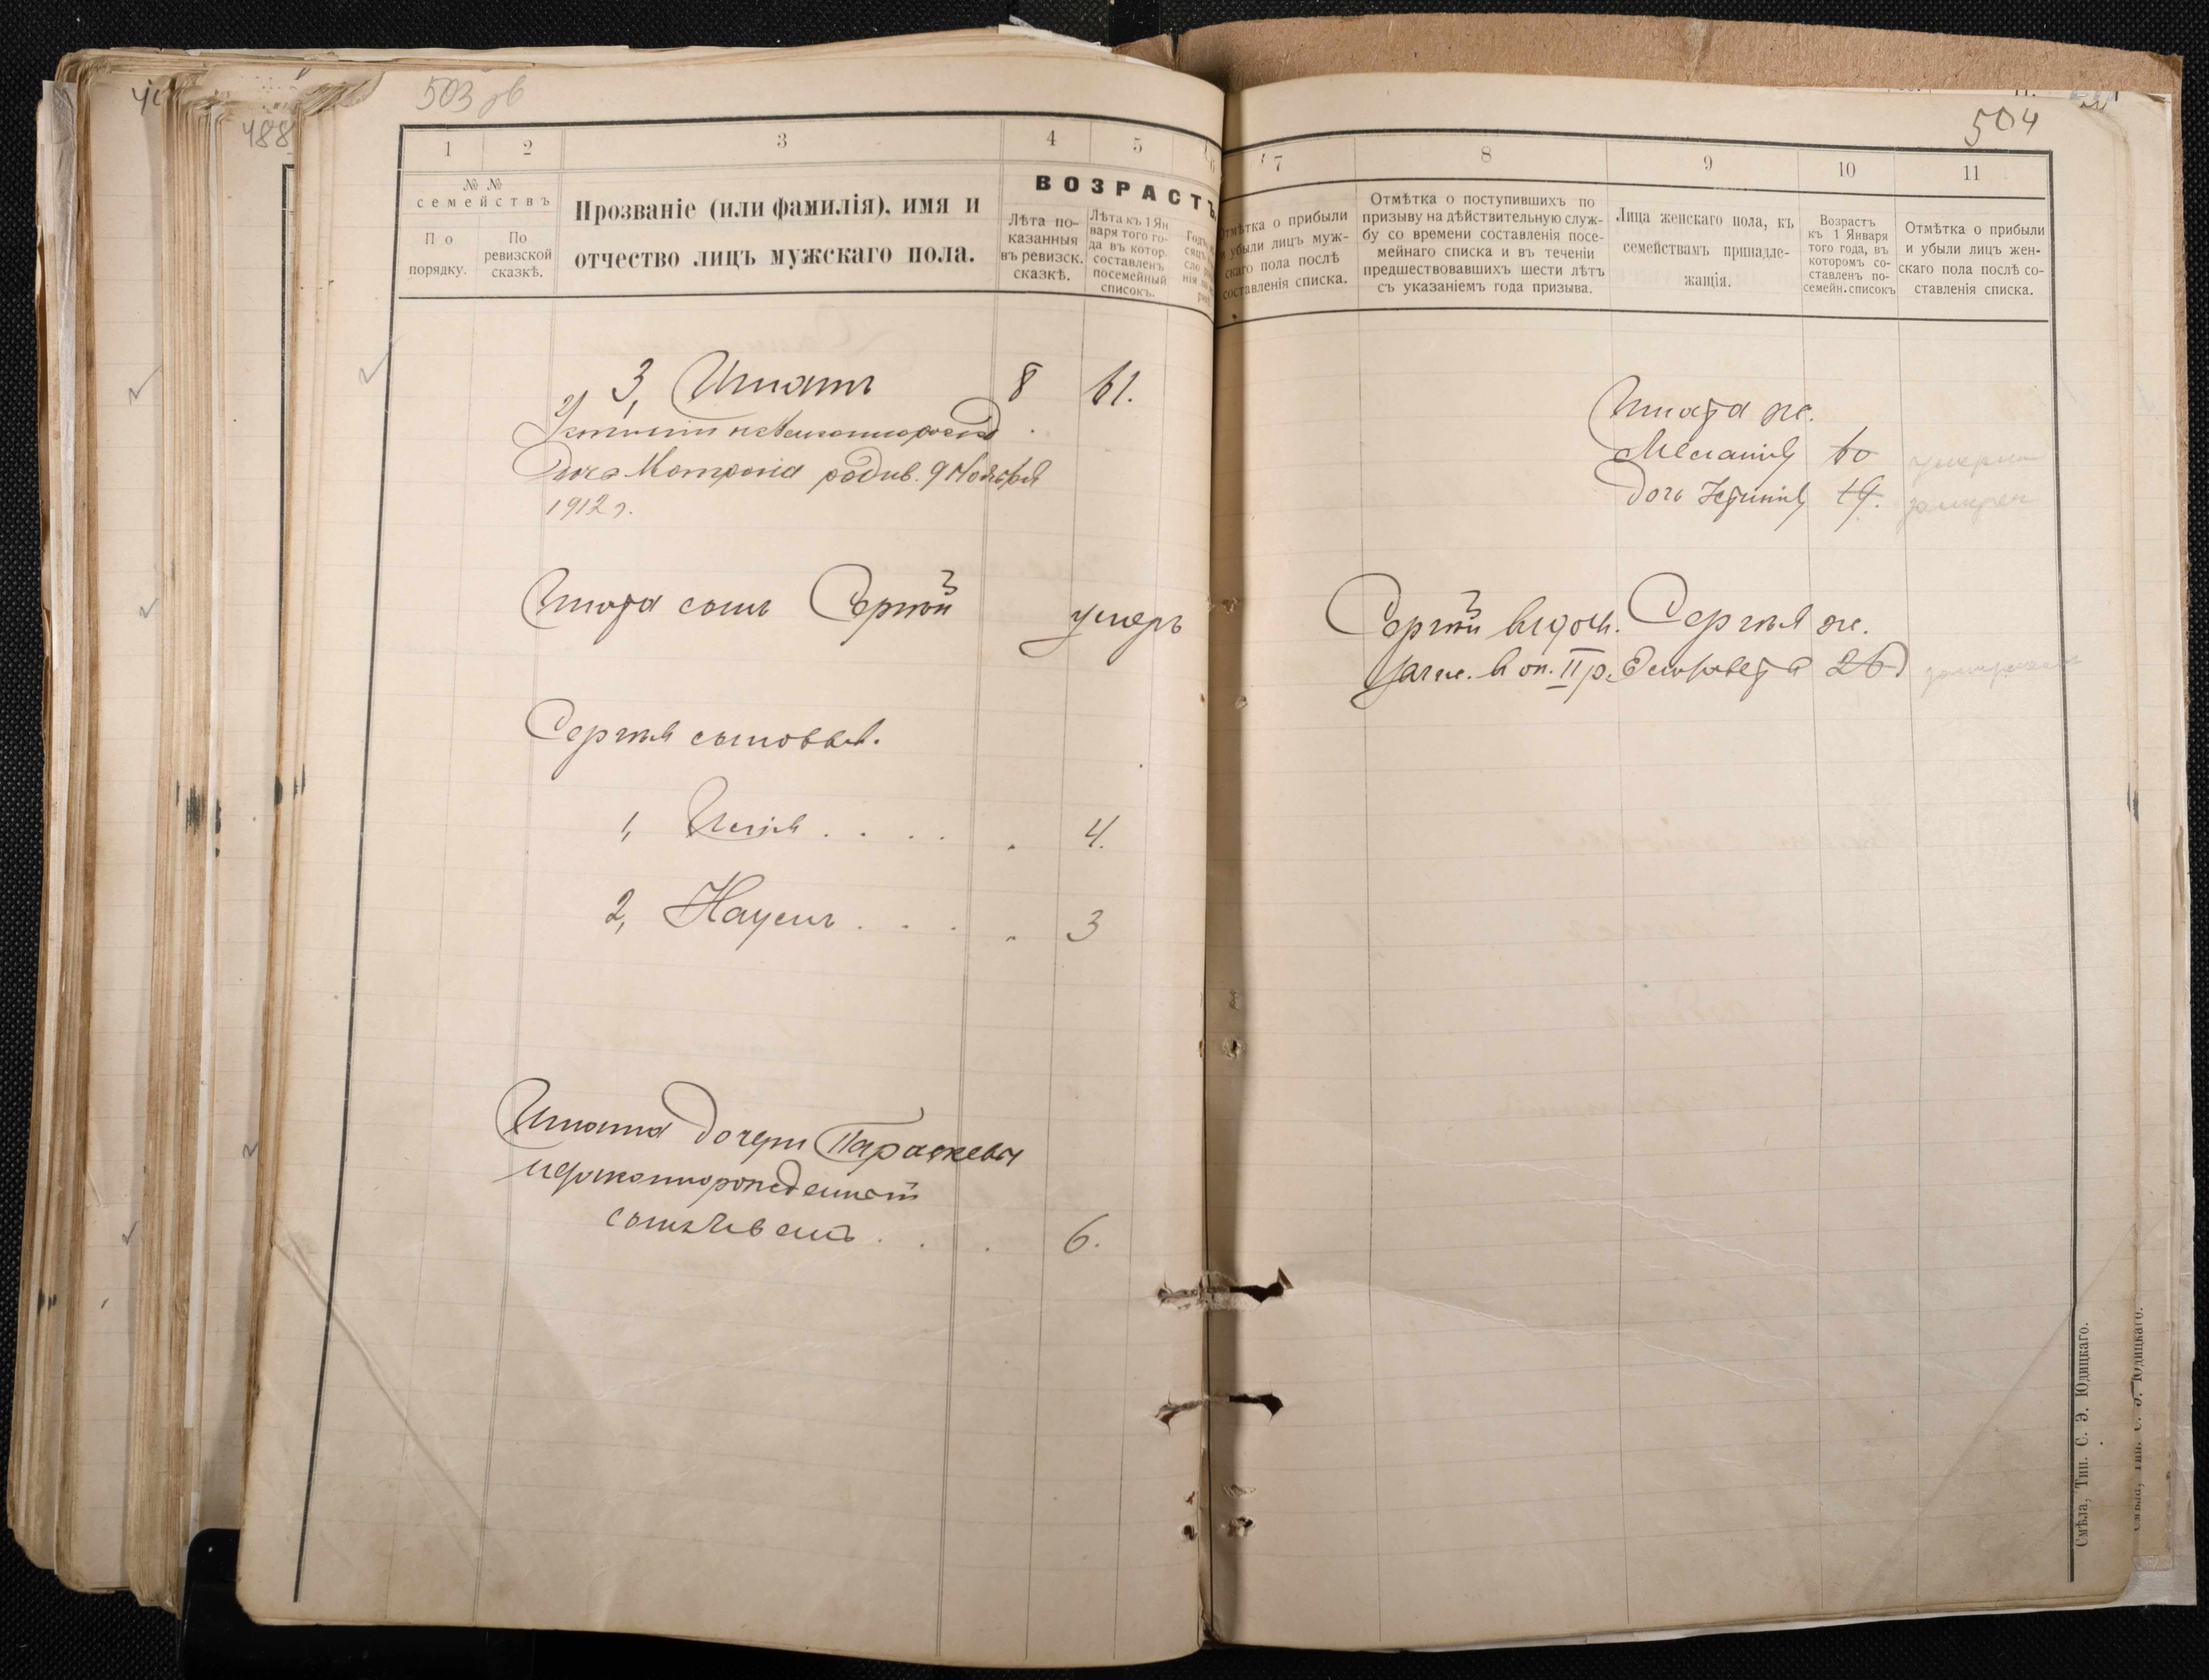 503 об
488
504
1
2
3
4
5
6
№ №
семействъ
По
порядку.
По
ревизской
сказкѣ.
Прозваніе (или фамилія), имя и
отчество лицъ мужскаго пола.
ВОЗРАСТЪ
Лѣта по-
казанныя
въ ревизск.
сказкѣ.
Лѣта къ 1 Ян
варя того го-
да въ котор.
составленъ
посемейный
списокъ.
3, Игнатъ 8 61.
Дочь Матрона родив. 9 Ноября
1912 г.
Игната сынъ Сергѣй 3 умеръ
Сергѣя сыновья.
1, Илія . . . . . 4.
2, Наумъ . . . . 3
Игната дочери Параскевы
незаконнорожденный
сынъ . . . 6.
7
8
9
10
11
Отмѣтка о прибыли
и убыли лицъ муж-
скаго пола послѣ
составленія списка.
Отмѣтка о поступившихъ по
призыву на дѣйствительную служ-
бу со времени составленія посе-
мейнаго списка и въ теченіи
предшествовавшихъ шести лѣтъ
съ указаніемъ года призыва.
Лица женскаго пола, къ
семействамъ принадле-
жащія.
Возрастъ
къ 1 Января
того года, въ
которомъ со-
ставленъ по-
семейн. списокъ
Отмѣтка о прибыли
и убыли лицъ жен-
скаго пола послѣ со-
ставленія списка.
Игната ж.
Меланія 60 умерла
дочь 19.
Сергѣй 3 Сергѣя ж.
в оп. II р. Елисавета 26
Смѣла, Тип. С. Э. Юдицкаго.